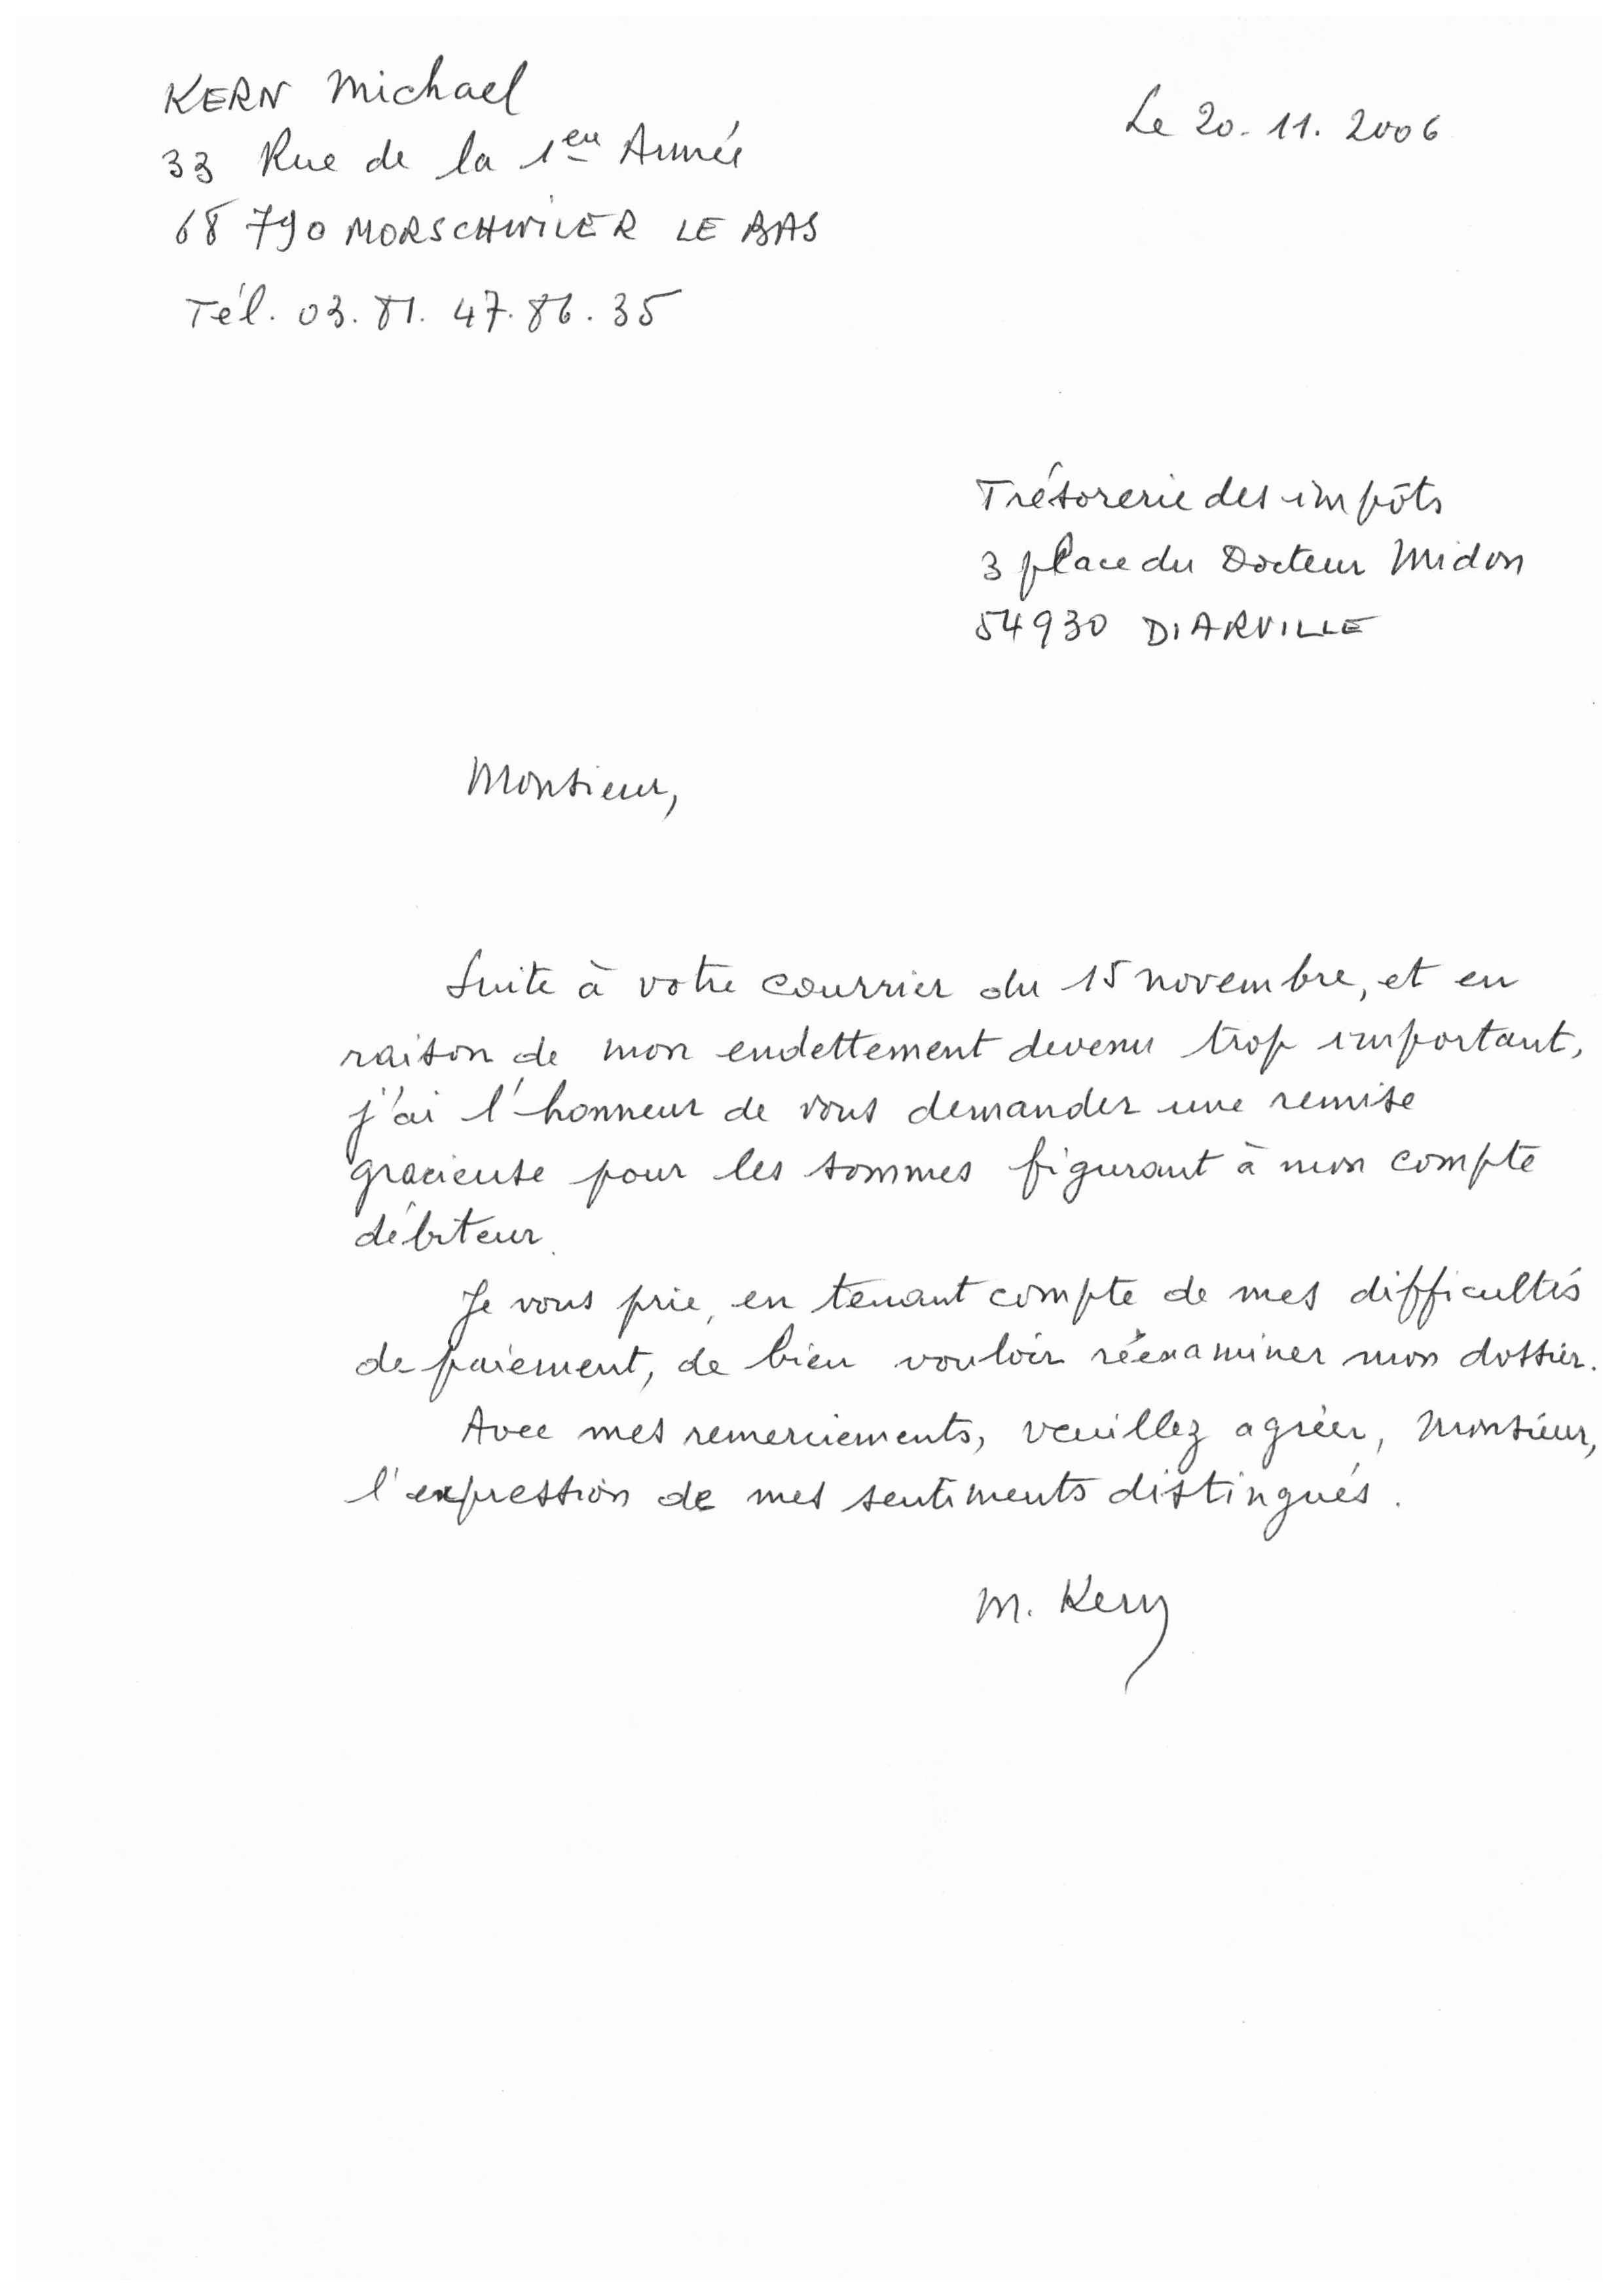 KERN Michael
Le 20.11.2006
33 Rue de la 1ere Armée
68 790 MORSCHWILER LE BAS
Tél. 03.81.47.86.35
Trésorerie des impôts
3 place du Docteur Midon
54930 DIARVILLE
Monsieur,
Suite à votre courrier du 15 novembre, et en
raison de mon endettement devenu trop important,
j'ai l'honneur de vous demander une remise
gracieuse pour les sommes figurant à mon compte
débiteur.
Je vous prie, en tenant compte de mes difficultés
de paiement, de bien vouloir réexaminer mon dossier.
Avec mes remerciements, veuillez agréer, Monsieur,
l'expression de mes sentiments distingués.
M. Kern